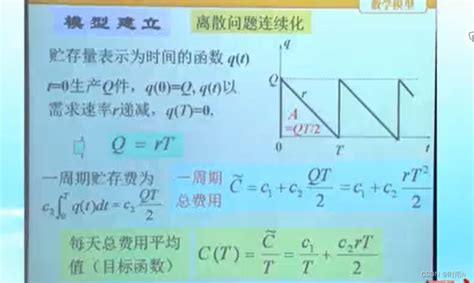 数学模型
模型建立
离散问题连续化
贮存量表示为时间的函数 q(t)
t=0生产Q件，q(0)=Q, q(t)以
需求速率r递减，q(T)=0.
Q = rT
q
Q
r
A
=QT/2
0
T
t
一周期贮存费为
c₂∫₀ᵀ q(t)dt = c₂ QT/2
一周期
总费用
C̃ = c₁ + c₂ QT/2 = c₁ + c₂ rT²/2
每天总费用平均
值（目标函数）
C(T) = C̃/T = c₁/T + c₂rT/2